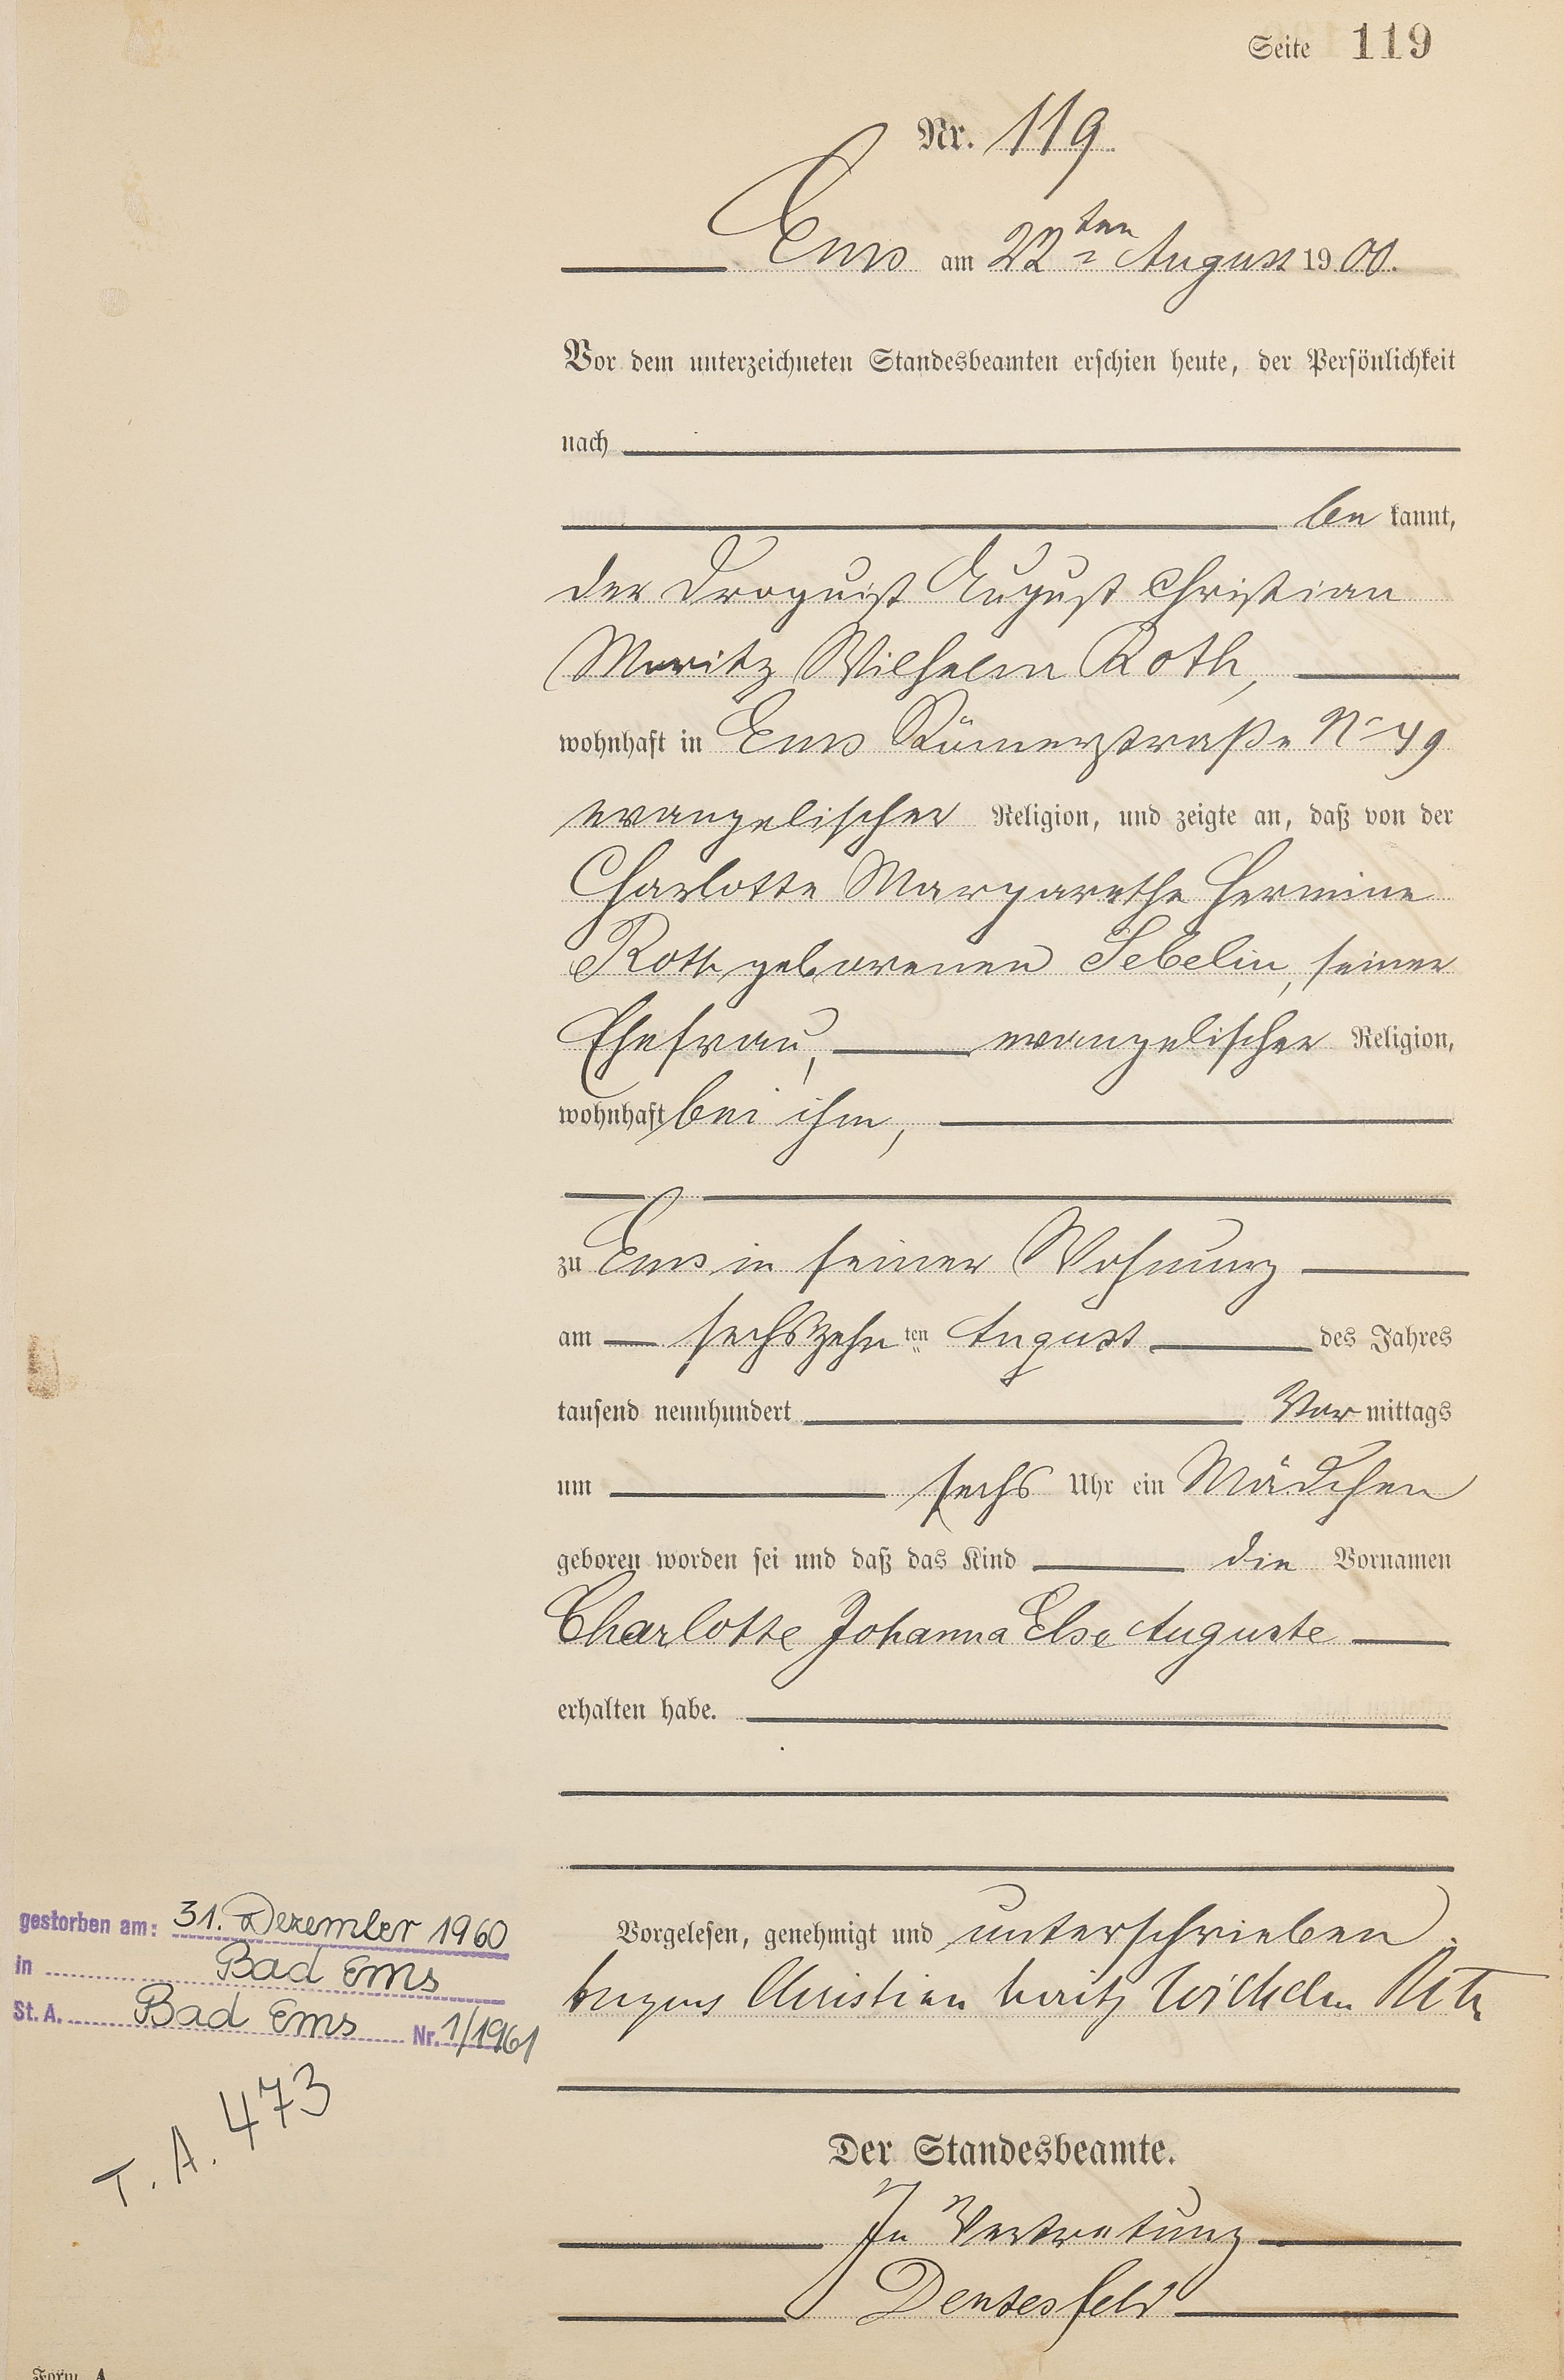 Seite 119
Nr. 119
Ems am 22ten August 1900.
Vor dem unterzeichneten Standesbeamten erschien heute, der Persönlichkeit
nach
be kannt,
der Droguist August Christian
Moritz Wilhelm Roth,
wohnhaft in Ems Römerstraße No 49
evangelischer Religion, und zeigte an, daß von der
Charlotte Margarethe Hermine
Roth geborenen Sebelin, seiner
Ehefrau, evangelischer Religion,
wohnhaft bei ihm,
zu Ems in seiner Wohnung
am sechszehn ten August des Jahres
tausend neunhundert Vor mittags
um sechs Uhr ein Mädchen
geboren worden sei und daß das Kind die Vornamen
Charlotte Johanna Else Auguste
erhalten habe.
Vorgelesen, genehmigt und unterschrieben.
August Christian Moritz Wilhelm Roth
Der Standesbeamte.
In Vertretung
gestorben am: 31. Dezember 1960
in Bad Ems
St. A. Bad Ems Nr. 1/1961
T. A. 473
Form. A